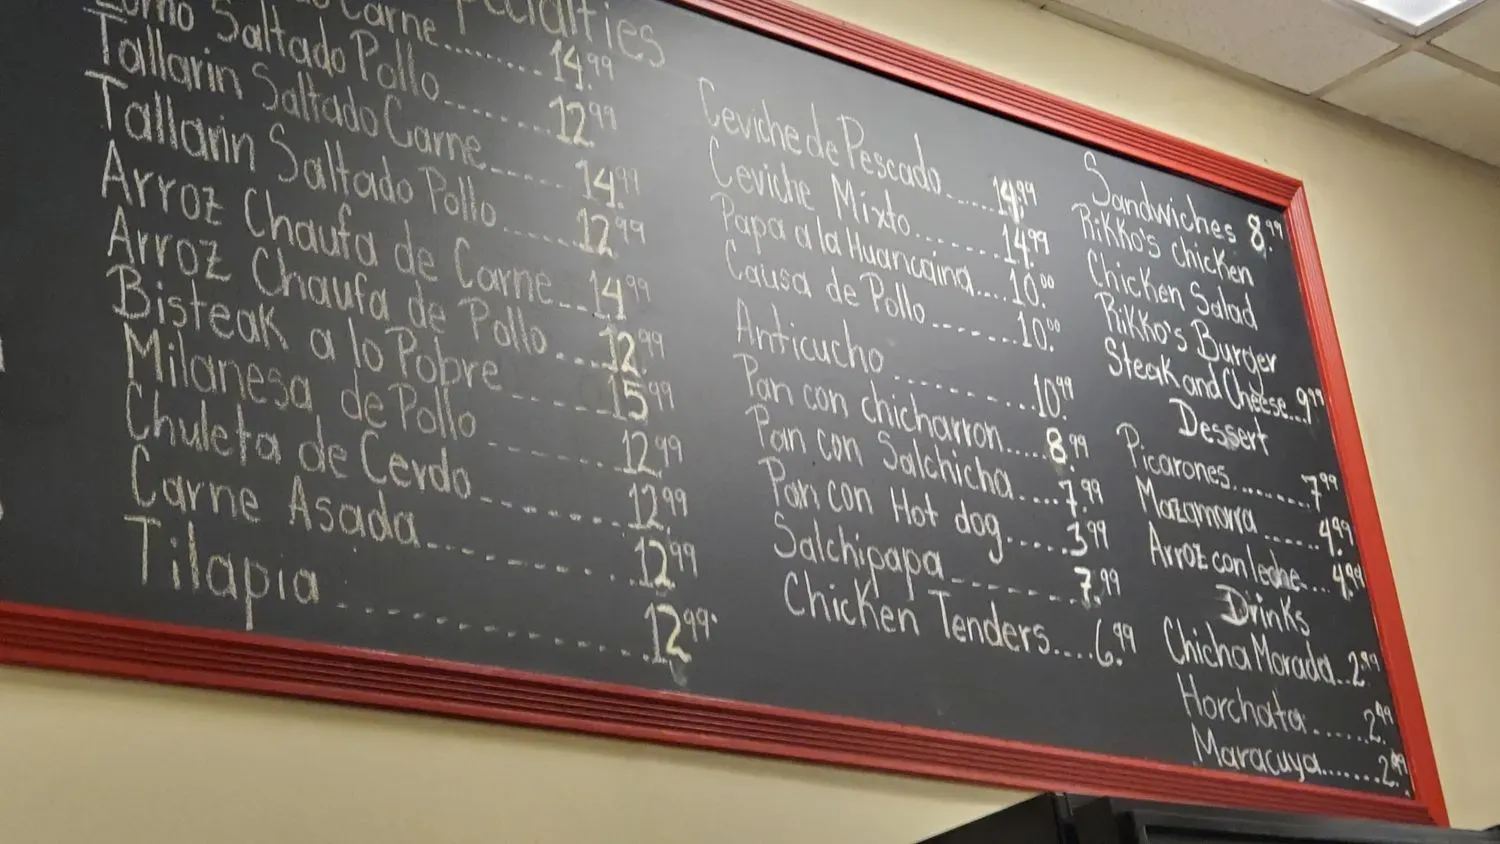 Specialties
Carne........14.99
Lomo Saltado Pollo........12.99
Tallarin Saltado Carne........14.99
Tallarin Saltado Pollo........12.99
Arroz Chaufa de Carne...14.99
Arroz Chaufa de Pollo....12.99
Bisteak a lo Pobre........15.99
Milanesa de Pollo........12.99
Chuleta de Cerdo........12.99
Carne Asada........12.99
Tilapia........12.99
Ceviche de Pescado.....14.99
Ceviche Mixto.......14.99
Papa a la Huancaina....10.00
Causa de Pollo.......10.00
Anticucho........10.99
Pan con chicharron....8.99
Pan con Salchicha....7.99
Pan con Hot dog.....3.99
Salchipapa........7.99
Chicken Tenders....6.99
Sandwiches 8.99
Rikko's chicken
Chicken Salad
Rikko's Burger
Steak and Cheese...9.99
Dessert
Picarones........7.99
Mazamorra......4.99
Arroz con leche...4.99
Drinks
Chicha Morada..2.99
Horchata......2.99
Maracuya.......2.99